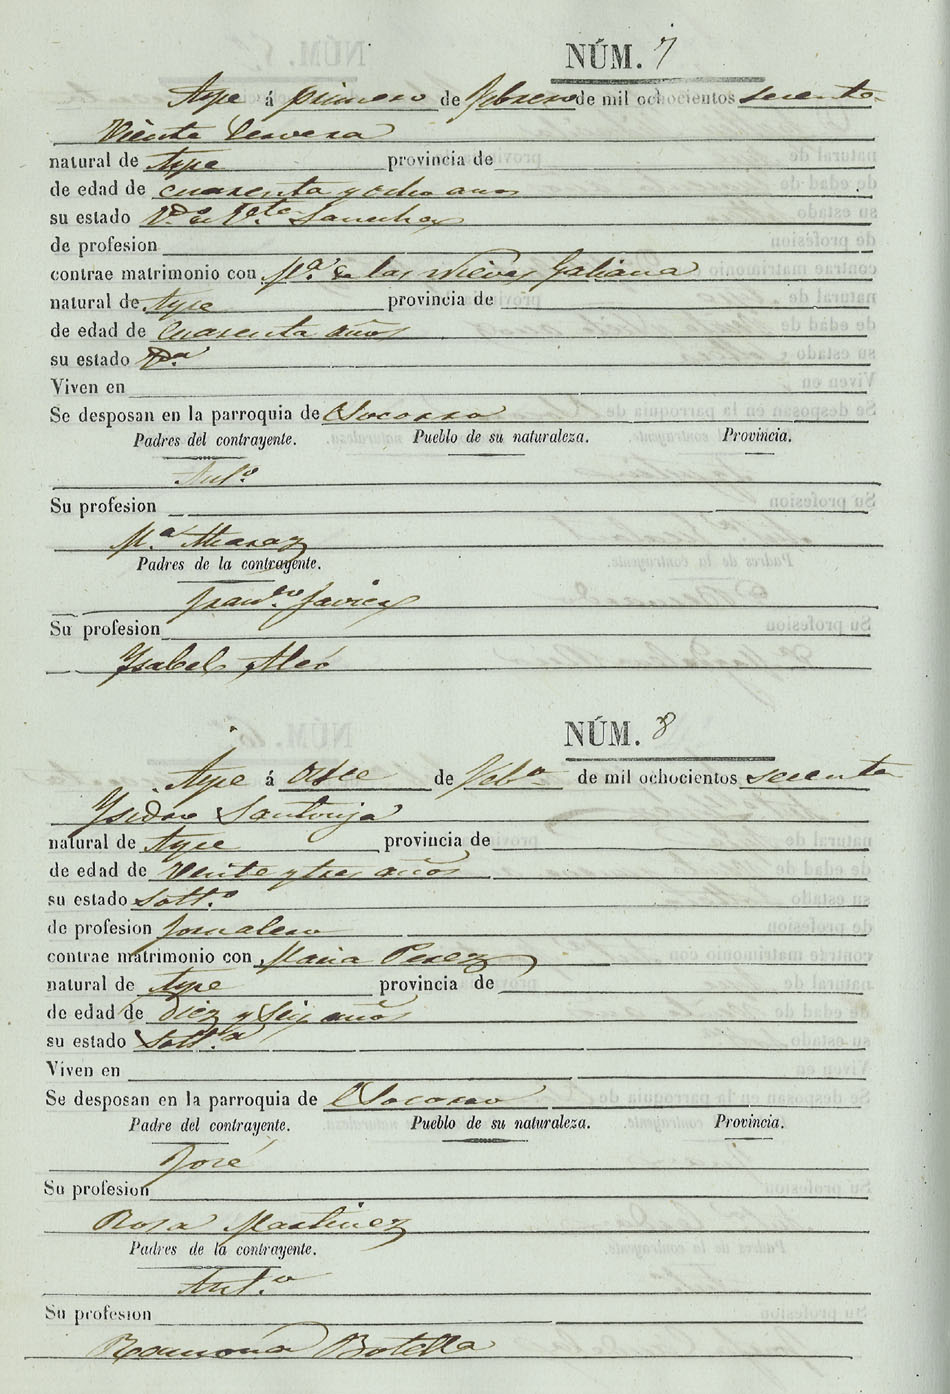 NÚM. 7
Aspe á primero de Febrero de mil ochocientos sesenta
Vicente Cervera
natural de Aspe provincia de
de edad de cuarenta y ocho años
su estado Vdo. de Vta. Sanchez
de profesion
contrae matrimonio con Ma. de las Nieves Galiana
natural de Aspe provincia de
de edad de cuarenta años
su estado Vda.
Viven en
Se desposan en la parroquia de Socorro
Padres del contrayente. Pueblo de su naturaleza. Provincia.
Anto.
Su profesion
Ma.
Padres de la contrayente.
Franco. Javier
Su profesion
Ysabel
NÚM. 8
Aspe á de Febo. de mil ochocientos sesenta
Ysidro Santonja
natural de Aspe provincia de
de edad de veinte y tres años
su estado Soltº
de profesion Jornalero
contrae matrimonio con Maria Perez
natural de Aspe provincia de
de edad de diez y seis años
su estado Soltª
Viven en
Se desposan en la parroquia de Socorro
Padre del contrayente. Pueblo de su naturaleza. Provincia.
José
Su profesion
Rosa Martinez
Padres de la contrayente.
Anto.
Su profesion
Ramona Botella